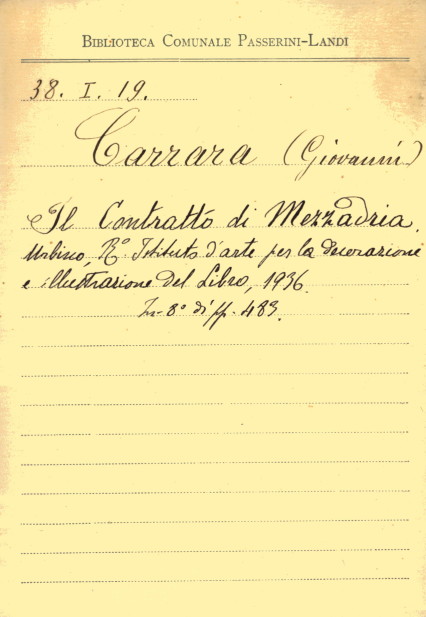 BIBLIOTECA COMUNALE PASSERINI-LANDI
38. I. 19.
Carrara (Giovanni)
Il Contratto di Mezzadria.
Urbino, R.º Istituto d'arte per la decorazione
e illustrazione del Libro, 1936.
In-8º di pp. 483.